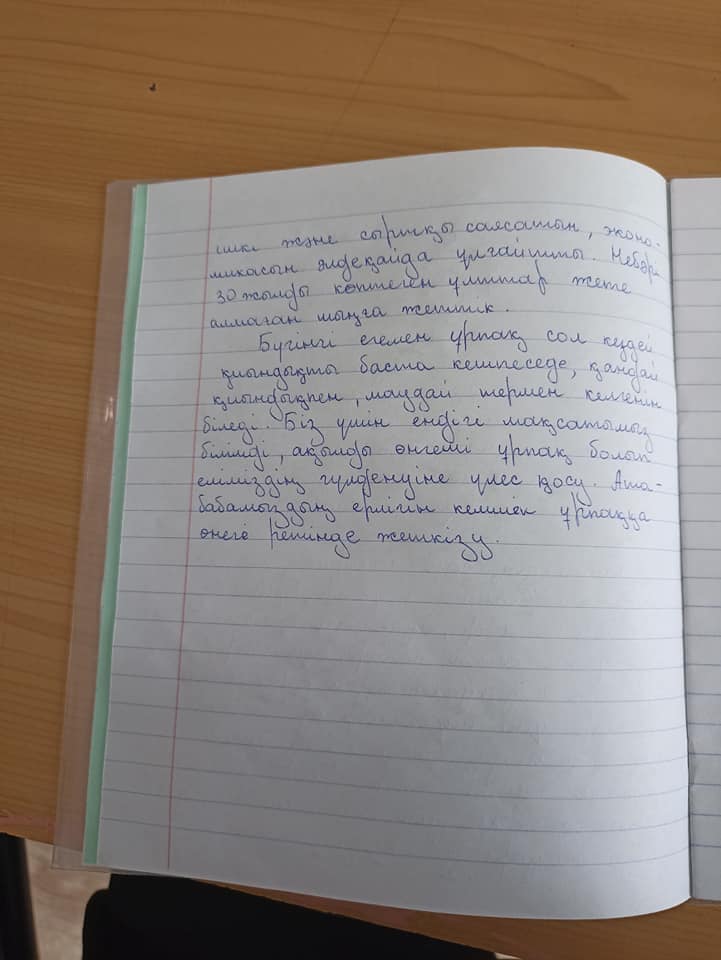 ішкі және сыртқы саясатын, эконо-
микасын әлдеқайда ұлғайтты. Небәрі
30 жылды көптеген ұлттар жете
алмаған шыңға жеттік.
Бүгінгі егемен ұрпақ сол кездей
қиындықты баста кешпеседе, қандай
қиындықпен, маңдай термен келгенін
біледі. Біз үшін ендігі мақсатымыз
білімді, ақылды өнгеті ұрпақ болып
еліміздің гүлденуіне үлес қосу. Ата-
бабамыздың ерлігін келшек ұрпаққа
өнеге ретінде жеткізу.